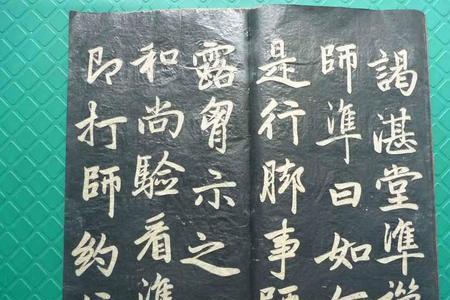 謁湛堂準禪
師準曰如何
是行脚事師
露胷示之
和尚驗看準
即打師約